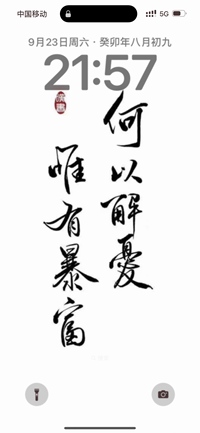 中国移动 5G
9月23日周六·癸卯年八月初九
21:57
何以解憂
唯有暴富